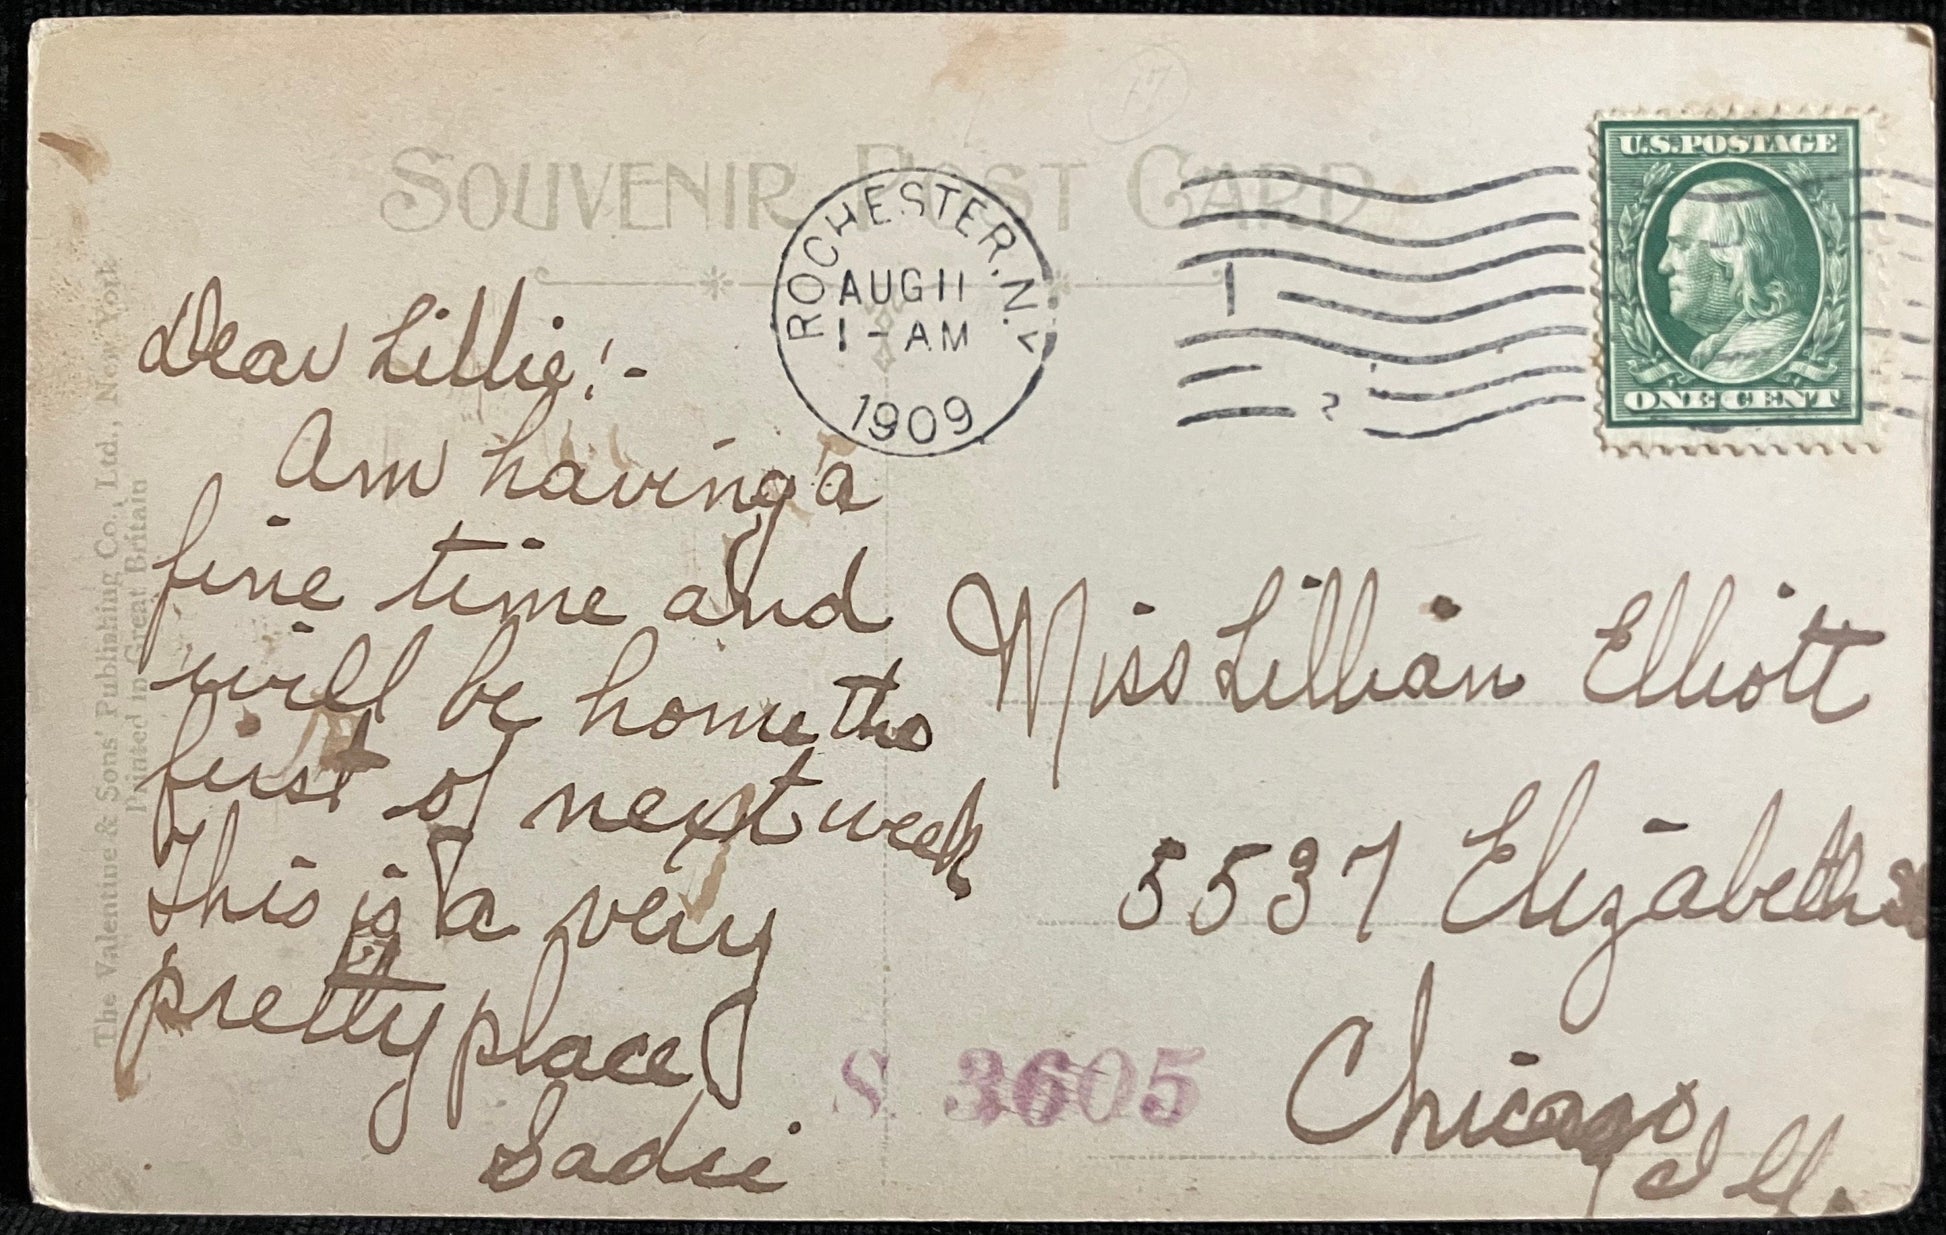 SOUVENIR POST CARD
ROCHESTER, N.Y.
AUG 11
1 - AM
1909
U.S. POSTAGE
ONE CENT
17
Dear Lillie! -
Am having a
fine time and
will be home the
first of next week
This is a very
pretty place
Sadie
Miss Lillian Elliott
5537 Elizabeth St
Chicago
Ill.
S. 3605
The Valentine & Sons' Publishing Co., Ltd., New York
Printed in Great Britain